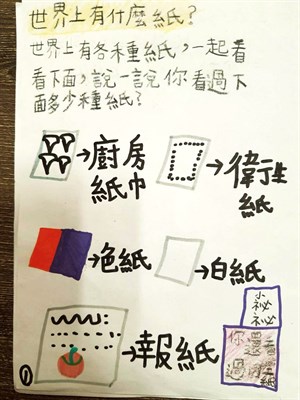 世界上有什麼紙?
世界上有各種紙,一起看
看下面,說一說你看過下
面多少種紙?
→廚房
紙巾
→衛生
紙
→色紙
→白紙
→報紙
你還看
過
1